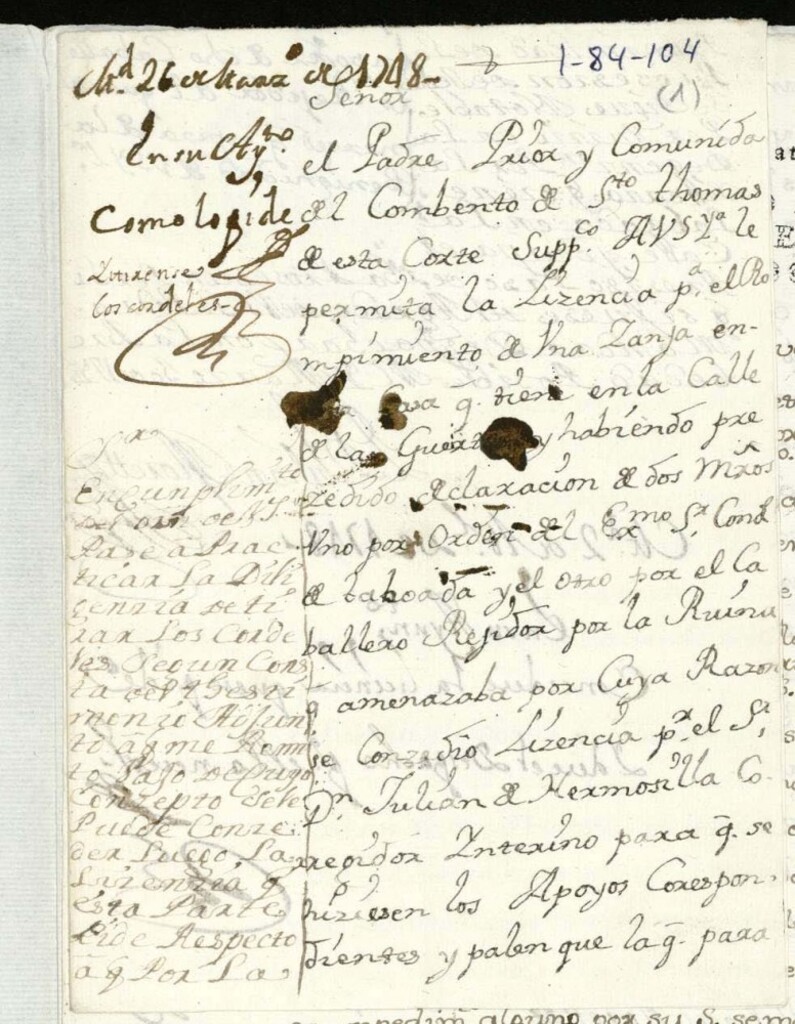 Md. 26 de Marzo de 1748-
1-84-104
(1)
En su Ayto.
Como lo pide
tirense
los cordeles-
Señor
el Padre Prior y Comunida
del Combento de Sto thomas
de esta Corte Suppco. A VS Yа le
permita la Lizencia pa. el Ro
mpimiento de Vna Zanja en-
Casa q. tiene en la Calle
de la y habiendo pre
zedido declaracion de dos Mros
Vno por Orden del Exmo Sr. Cond
de taboada y el otro por el Ca
ballero Rejidor por la Ruina
q amenazaba por Cuya Razon
se Conzedio Lizencia pr. el Sr.
Dn. Julian de Hermosilla Co-
rregidor Ynterino para q. se
hiziesen los Apoyos Corespon-
dientes y palenque la q. para
Sor
En cunplimto
del de
Pase a Prac
ticar La Dili
genzia de ti
rar Los Corde
les Segun Cons
ta del thesti
monio Adjun
to a q me Remi
to bajo de cuyo
Conzepto sele
Puede Conze
der Luego La
Lizenzia q
esta Parte
Pide Respecto
a q Por La